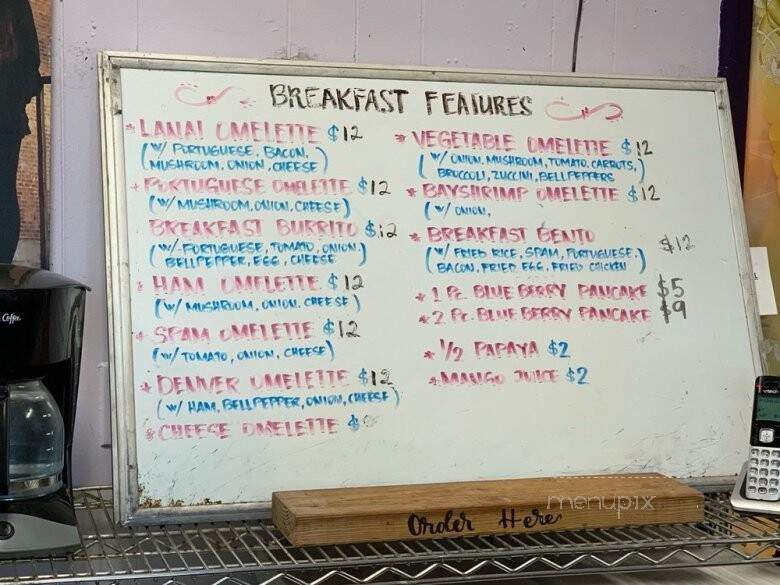 BREAKFAST FEATURES
* LANAI OMELETTE $12
(W/ PORTUGUESE, BACON,
MUSHROOM, ONION, CHEESE)
* PORTUGUESE OMELETTE $12
(W/ MUSHROOM, ONION, CHEESE)
BREAKFAST BURRITO $12
(W/ PORTUGUESE, TOMATO, ONION,
BELLPEPPER, EGG, CHEESE)
* HAM OMELETTE $12
(W/ MUSHROOM, ONION, CHEESE)
* SPAM OMELETTE $12
(W/ TOMATO, ONION, CHEESE)
* DENVER OMELETTE $12
(W/ HAM, BELLPEPPER, ONION, CHEESE)
* CHEESE OMELETTE $
* VEGETABLE OMELETTE $12
(W/ ONION, MUSHROOM, TOMATO, CARROTS,
BROCCOLI, ZUCCINI, BELLPEPPERS)
* BAYSHRIMP OMELETTE $12
(W/ ONION,
* BREAKFAST BENTO $12
(W/ FRIED RICE, SPAM, PORTUGUESE,
BACON, FRIED EGG, FRIED CHICKEN)
* 1 Pc. BLUE BERRY PANCAKE $5
* 2 Pc. BLUE BERRY PANCAKE $9
* 1/2 PAPAYA $2
* MANGO JUICE $2
Order Here
menupix
Coffee